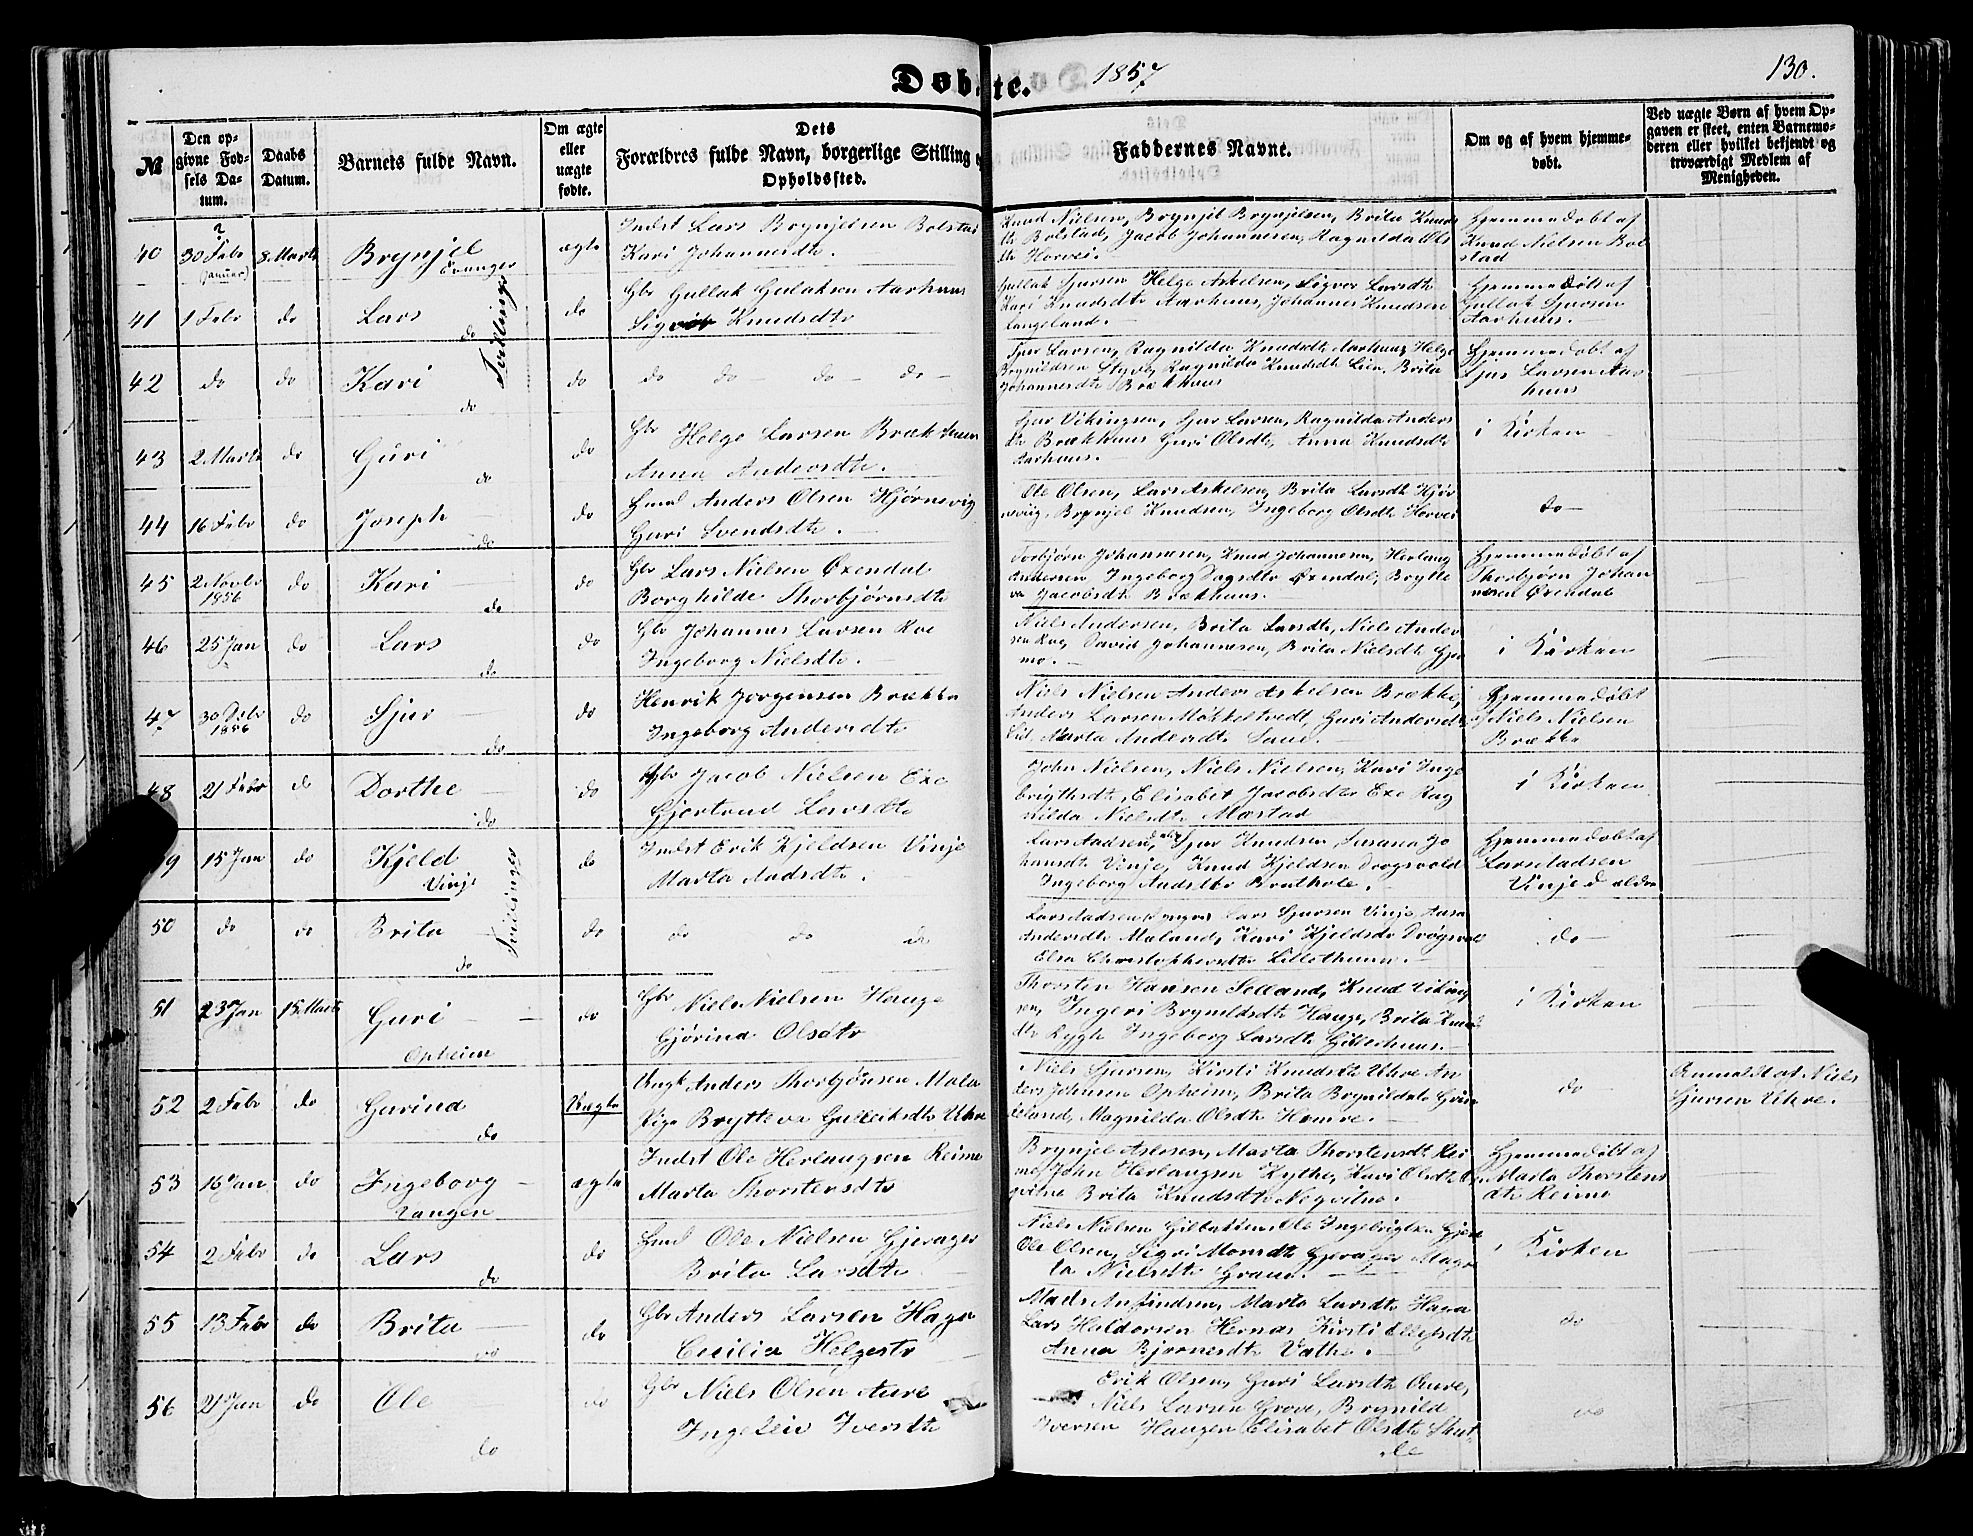 Døbte. 1857
130.
№
Den opgivne Fødsels Datum.
Daabs Datum.
Barnets fulde Navn.
Om ægte eller uægte fødte.
Dets Forældres fulde Navn, borgerlige Stilling og Opholdssted.
Faddernes Navne.
Om og af hvem hjemmedøbt.
Ved uægte Børn af hvem Opgaven er skeet, enten Barnemoderen eller hvilket bekjendt og troværdigt Medlem af Menigheden.
40 30 Febr (Januar) 8 Marts Brynjel Evanger ægte
Indst Lars Brynjelsen Bolstad
Kari Johannesdtr.
Knud Nielsen, Brynjel Brynjelsen, Brita Knuds
dtr Bolstad, Jacob Johannesen, Ragnilda Ols
dtr Horvei.
Hjemmedøbt af
Knud Nielsen Bol
stad
41 1 Febr do Lars do Tvillinger do
Gbr Gullak Gulaksen Aarhuus
Sigvor Knudsdtr
Gullak Sjursen Helge Askelsen, Sigvor Larsdtr
Kari Knudsdtr Aarhuus, Johannes Knudsen
Langeland.
Hjemmedøbt af
Gullak Sjursen
Aarhuus.
42 do do Kari do do
do do do do
Sjur Larsen, Ragnilda Knudsdtr Aarhuus, Helge
Brynildsen Styve, Ragnilda Knudsdtr Lien, Brita
Johannesdtr Brækhuus
Hjemmedøbt af
Sjur Larsen Aar
huus
43 2 Marts do Guri do do
Gbr Helge Larsen Brækhuus
Anna Andersdtr.
Sjur Vikingsen, Sjur Larsen, Ragnilda Anders
dtr Brækhuus Guri Olsdtr, Anna Knudsdtr
Aarhuus.
i Kirken
44 16 Febr do Joseph do do
Huusm Anders Olsen Hjørnevig
Guri Svendsdtr.
Ole Olsen, Lars Askelsen, Brita Larsdtr Hjør
nevig, Brynjel Knudsen, Ingeborg Olsdtr Horvei
do
45 2 Novbr 1856 do Kari do do
Gbr Lars Nielsen Øxendal
Borghilde Thorbjørnsdtr
Torbjørn Johannesen, Knud Johannesen, Herlaug
Andersen Ingeborg Dagsdtr Øxendal, Brytte
va Jacobsdtr Brækhuus.
Hjemmedøbt af
Thorbjørn Johan
nesen Øxendal
46 25 Jan do Lars do do
Gbr Johannes Larsen Roe
Ingeborg Nielsdtr.
Niels Andersen, Brita Larsdtr, Niels Ander
sen Roe, David Johannesen, Brita Nielsdtr Gjer
me.
i Kirken
47 30 Debr 1856 do Sjur do do
Henrik Jørgensen Brække
Ingeborg Andersdtr
Niels Nielsen Anders Askelsen Brække,
Anders Larsen Møkkestvedt, Guri Andersdtr
Lid, Marta Andersdtr Saue.
Hjemmedøbt
af Niels Nielsen
Brække
48 21 Febr do Dorthe do do
Gbr Jacob Nielsen Exe
Gjertrud Larsdtr
John Nielsen, Niels Nielsen, Kari Inge
brigtsdtr, Elisabet Jacobsdtr Exe Rag
nilda Nielsdtr Mæstad
i Kirken
49 15 Jan do Kjeld Vinje Tvillinger do
Indst Erik Kjeldsen Vinje
Marta Aadsdtr.
Lars Aadsen, d ældr Sjur Knudsen Susana Jo
hansdtr Vinje, Knud Kjeldsen Drogsvold
Ingeborg Aadsdtr Brathole.
Hjemmedøbt af
Lars Aadsen
Vinje d ældre
50 do do Brita do do
do do do
Lars Aadsen d yngre Lars Sjursen Vinje, Aasa
Andersdtr Maland, Kari Kjeldsdtr Drøgsvold
Elsa Christophersdtr Lillethuun.
do
51 23 Jan 15 Marts Guri Opheim do
Gbr Niels Nielsen Hauge
Gjørina Olsdtr
Thorsten Hansen Selland, Knud Viking
sen, Ingeri Brynildsdtr Hauge, Brita Knuds
dtr Rygh Ingeborg Larsdtr Gillerhuus.
i Kirken
52 2 Febr do Gurind do Uægte
Ungk Anders Thorbjønsen Mala
Pige Brytteva Gullaksdtr Uhre
Niels Sjursen, Kirsti Knudsdtr Uhre An
ders Johnsen Opheim, Brita Brynildsdtr Grim
eland, Magnilda Olsdtr Homve.
do
Anmeldt af Niels
Sjursen Uhre.
53 16 Jan do Ingeborg Vangen ægte
Indst Ole Herlaugsen Reime
Marta Thorstensdtr
Brynjel Aslesen, Marta Thorstensdtr Rei
me, John Herlaugsen Kythe, Kari Olsdtr Ne
qvitne Brita Knudsdtr Neqvitne.
Hjemmedøbt af
Marta Thorstens
dtr Reime
54 2 Febr do Lars do do
Huusm Ole Nielsen Gjerager
Brita Larsdtr
Niels Nielsen Gilbakken, Ole Ingebrigtsen Gjera
Ole Olsen, Sigri Monsdtr Gjerager Magre
ta Nielsdtr Graue.
i Kirken
55 13 Febr do Brita do do
Gbr Anders Larsen Haga
Cecilia Helgesdtr
Mads Anfindsen, Marta Larsdtr Haga
Lars Haldorsen Hernæs Kirsti Ellefsdtr
Anna Bjørnesdtr Væthe.
do
56 21 Jan do Ole do do
Gbr Niels Olsen Aure
Ingeleiv Iversdtr
Erik Olsen, Guri Larsdtr Aure,
Niels Larsen Grove, Brynild
Iversen Haugen Elisabet Olsdtr Skut
le
do